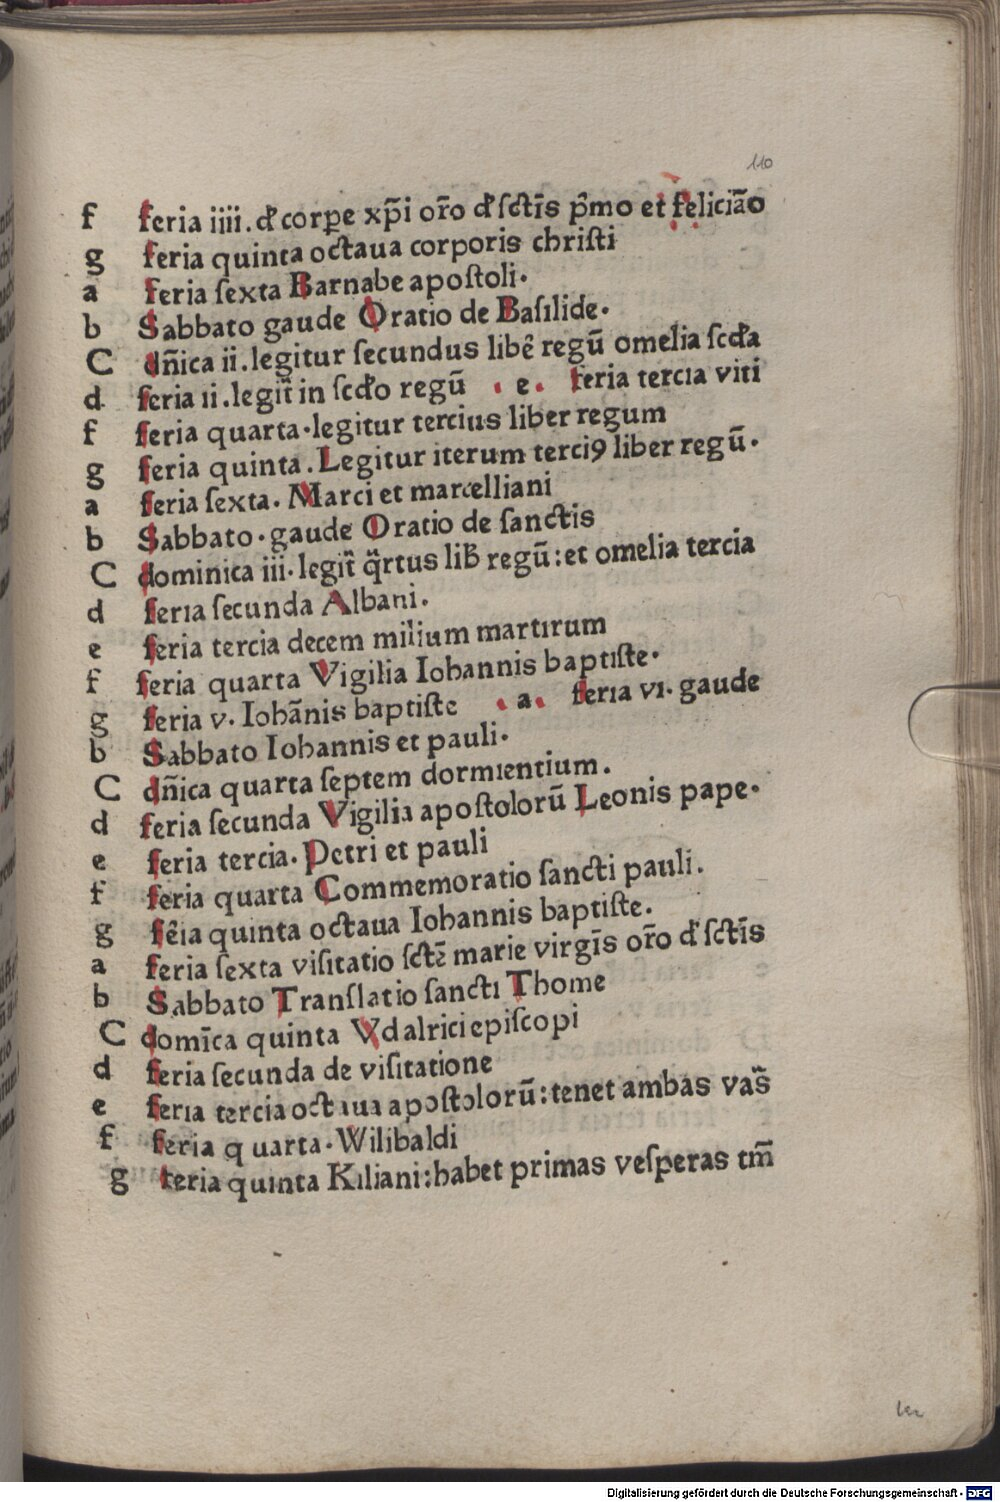 110
f feria iiii. d̕ corꝑe xp̄i or̄o d̕ ſctīs p̄mo et feliciāo
g feria quinta octaua corporis chriſti
a feria ſexta Barnabe apoſtoli.
b Sabbato gaude Oratio de Baſilide.
C dn̄ica ii. legitur ſecundus libē regū omelia ſcd̕a
d feria ii. legit᷑ in ſcd̕o regū . e. feria tercia viti
f feria quarta. legitur tercius liber regum
g feria quinta. Legitur iterum terciꝰ liber regū.
a feria ſexta. Marci et marcelliani
b Sabbato. gaude Oratio de ſanctis
C dominica iii. legit᷑ q̄rtus lib̄ regū: et omelia tercia
d feria ſecunda Albani.
e feria tercia decem milium martirum
f feria quarta Vigilia Iohannis baptiſte.
g feria v. Iohānis baptiſte . a. feria vi. gaude
b Sabbato Iohannis et pauli.
C dn̄ica quarta ſeptem dormientium.
d feria ſecunda Vigilia apoſtolorū Leonis pape.
e feria tercia. Petri et pauli
f feria quarta Commemoratio ſancti pauli.
g fēia quinta octaua Iohannis baptiſte.
a feria ſexta viſitatio ſctē marie virgīs or̄o d̕ ſctīs
b Sabbato Tranſlatio ſancti Thome
C domīca quinta Vdalrici epiſcopi
d feria ſecunda de viſitatione
e feria tercia octaua apoſtolorū: tenet ambas vas̄
f feria quarta. Wilibaldi
g feria quinta Kiliani: habet primas veſperas tm̄
Digitalisierung gefördert durch die Deutsche Forschungsgemeinschaft - DFG